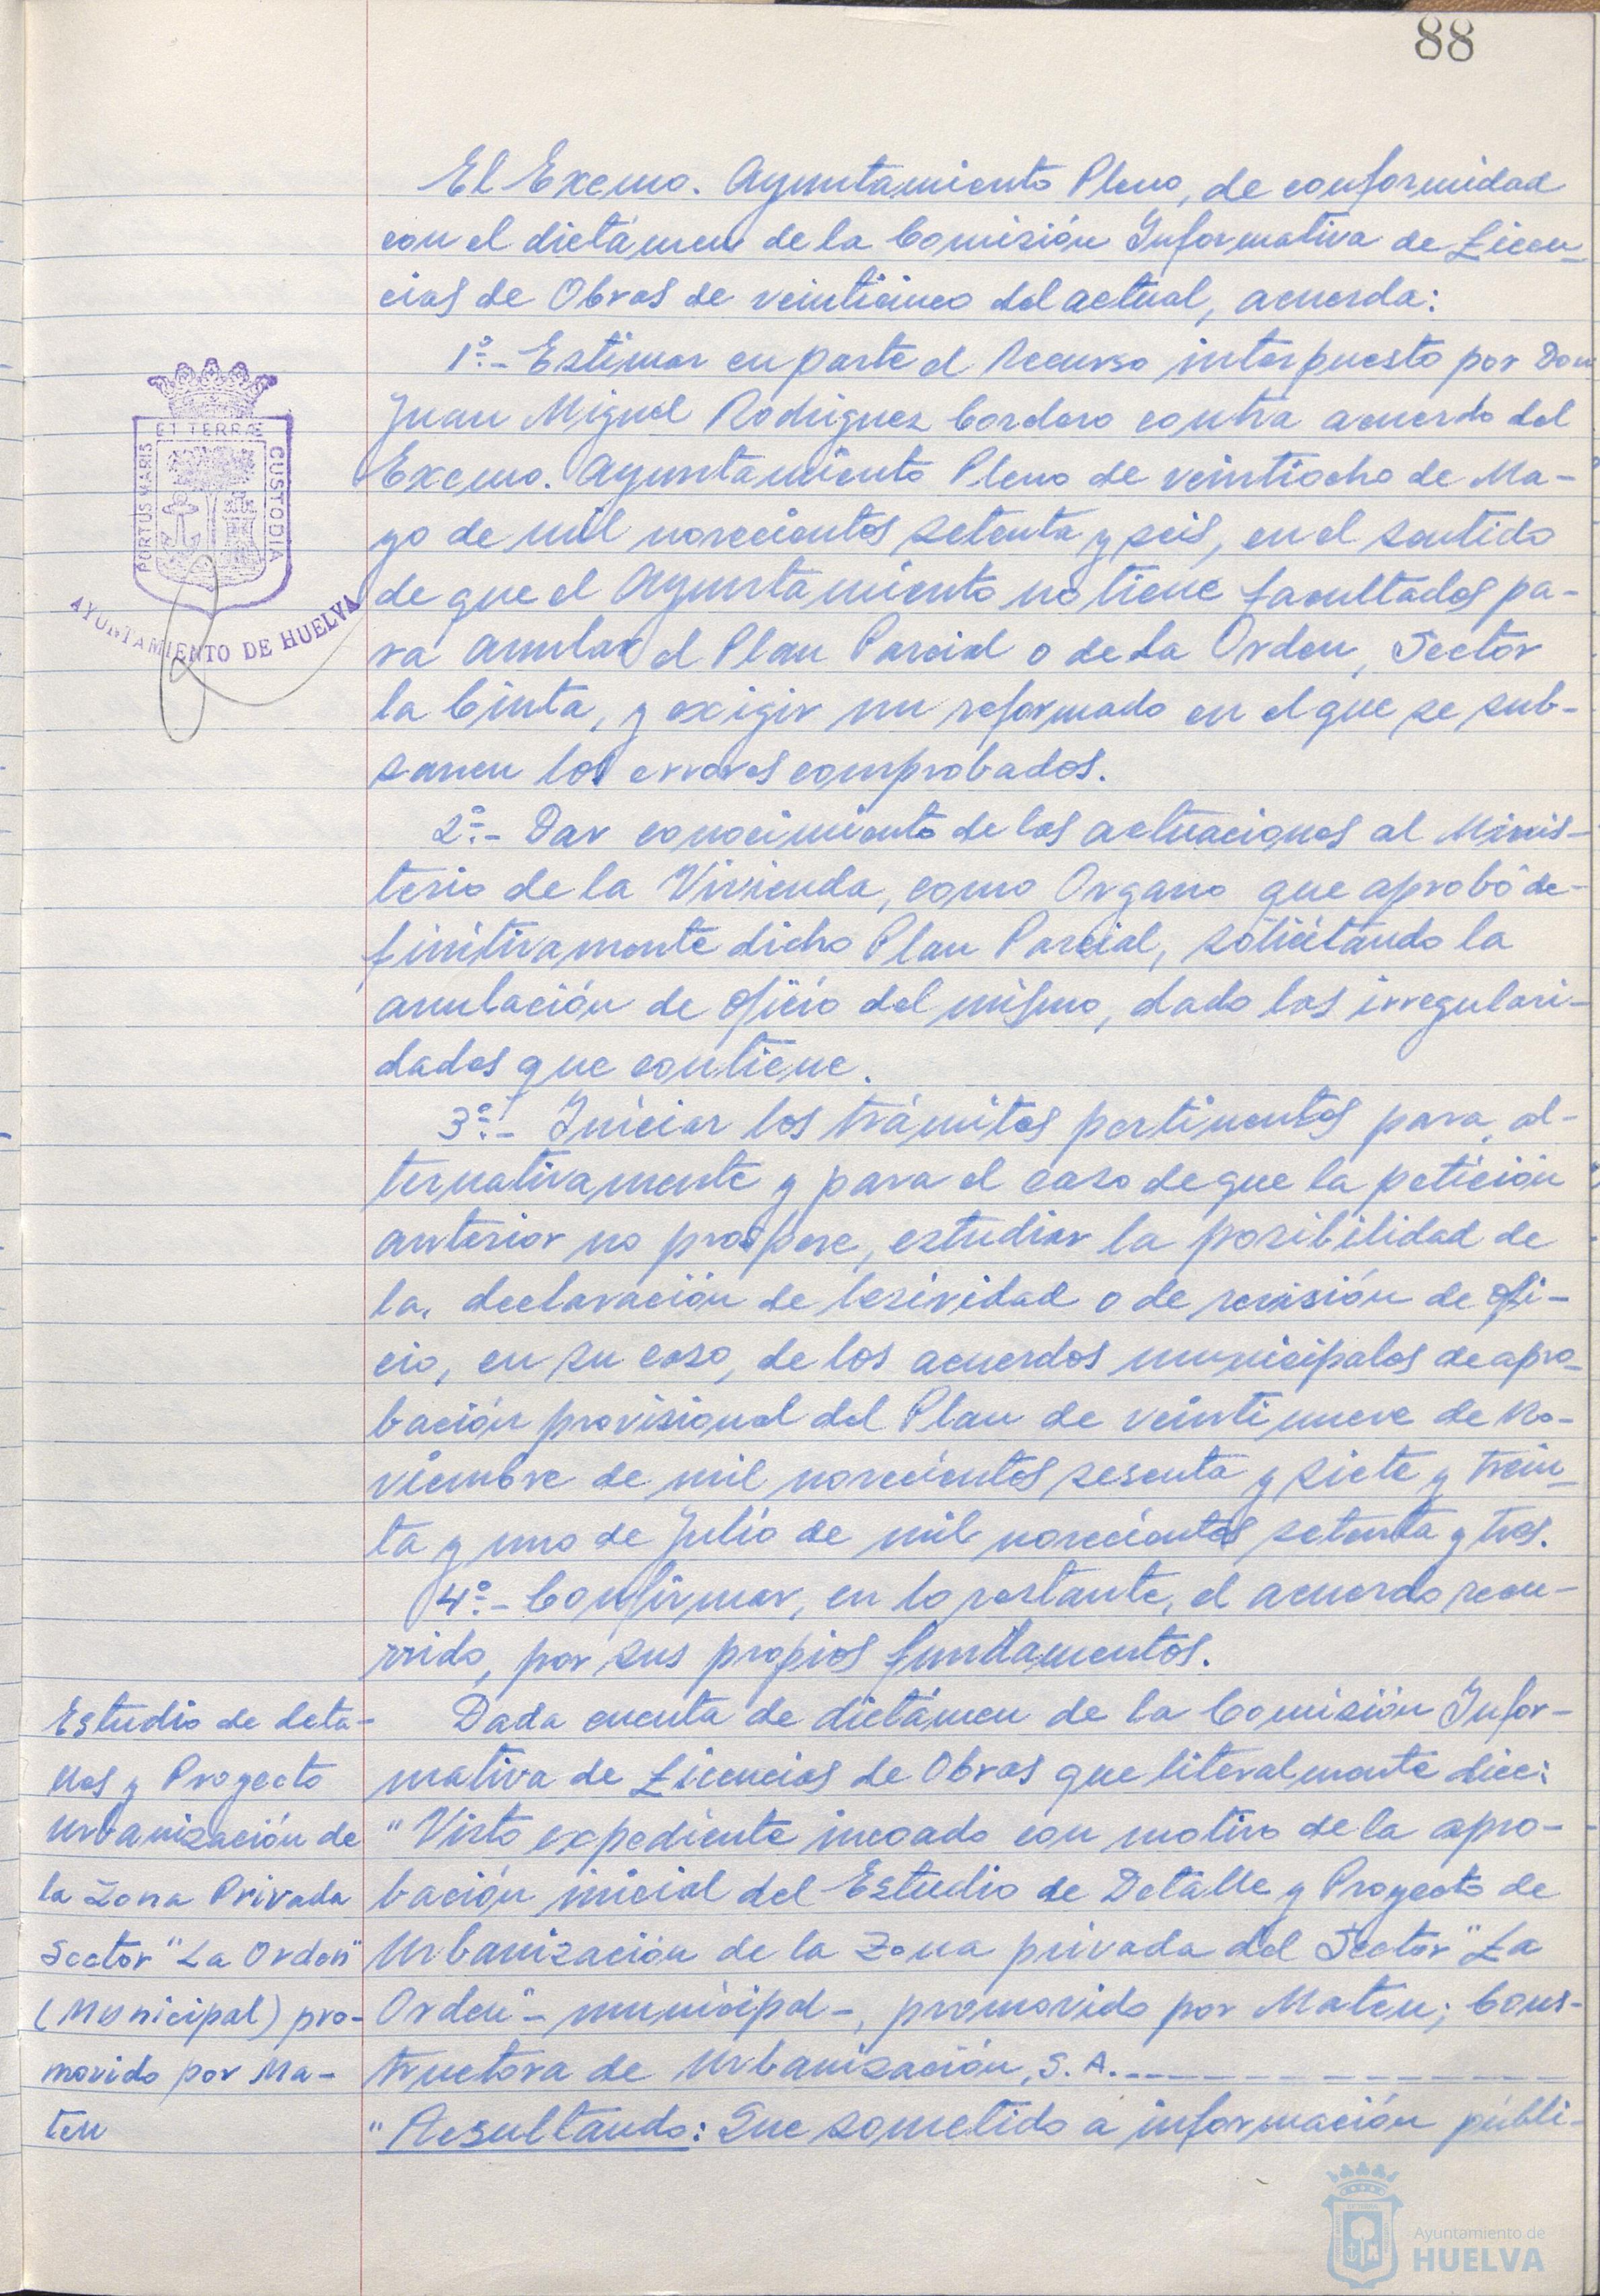 88
El Excmo. Ayuntamiento Pleno, de conformidad
con el dictámen de la Comisión Informativa de Licen-
cias de Obras de veinticinco del actual, acuerda:
1º.- Estimar en parte el Recurso interpuesto por Don
Juan Miguel Rodriguez Cordero contra acuerdo del
Excmo. Ayuntamiento Pleno de veintiocho de Ma-
yo de mil novecientos setenta y seis, en el sentido
de que el Ayuntamiento no tiene facultades pa-
ra anular el Plan Parcial o de La Orden, Sector
la Cinta, y exigir un reformado en el que se sub-
sanen los errores comprobados.
2º.- Dar conocimiento de las actuaciones al Minis-
terio de la Vivienda, como Organo que aprobó de-
finitivamente dicho Plan Parcial, solicitando la
anulación de oficio del mismo, dado las irregulari-
dades que contiene.
3º.- Iniciar los trámites pertinentes para, al-
ternativamente y para el caso de que la petición
anterior no prospere, estudiar la posibilidad de
la declaración de lesividad o de revisión de ofi-
cio, en su caso, de los acuerdos municipales de apro-
bación provisional del Plan de veintinueve de No-
viembre de mil novecientos sesenta y siete y trein-
ta y uno de Julio de mil novecientos setenta y tres.
4º.- Confirmar, en lo restante, el acuerdo recu-
rrido, por sus propios fundamentos.
Dada cuenta de dictámen de la Comisión Infor-
mativa de Licencias de Obras que literalmente dice:
"Visto expediente incoado con motivo de la apro-
bación inicial del Estudio de Detalle y Proyecto de
Urbanización de la Zona privada del Sector "La
Orden"- municipal-, promovido por Mateu; Cons-
tructora de Urbanización, S.A.-------------
"Resultando: Que sometido a información públi-
Estudio de deta-
lles y Proyecto
Urbanización de
la Zona Privada
Sector "La Orden"
(Municipal) pro-
movido por Ma-
teu
PORTUS MARIS
ET TERRÆ
CUSTODIA
AYUNTAMIENTO DE HUELVA
Ayuntamiento de
HUELVA